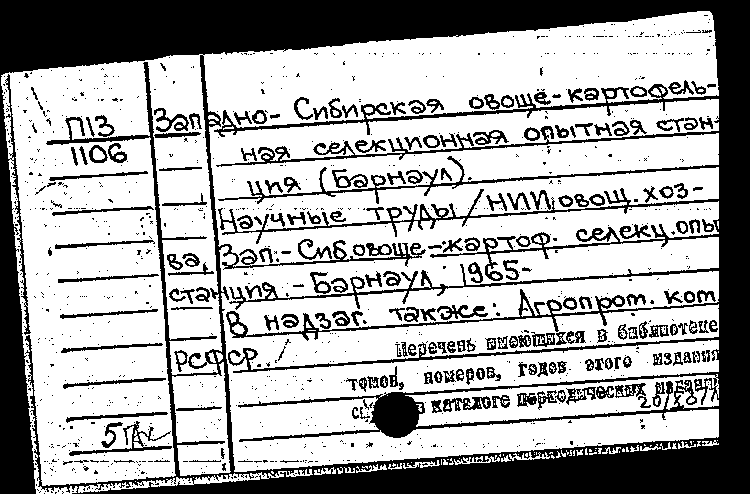 П13 Западно-Сибирская овоще-картофель-
1106 ная селекционная опытная стан-
ция (Барнаул).
Научные труды/НИИ овощ. хоз-
ва, Зап.-Сиб. овоще-картоф. селекц. опы
станция. - Барнаул, 1965-
В надзаг. также: Агропром. ком.
РСФСР.
Перечень имеющихся в библиотеке
томов, номеров, годов этого издания
в каталоге периодических издани